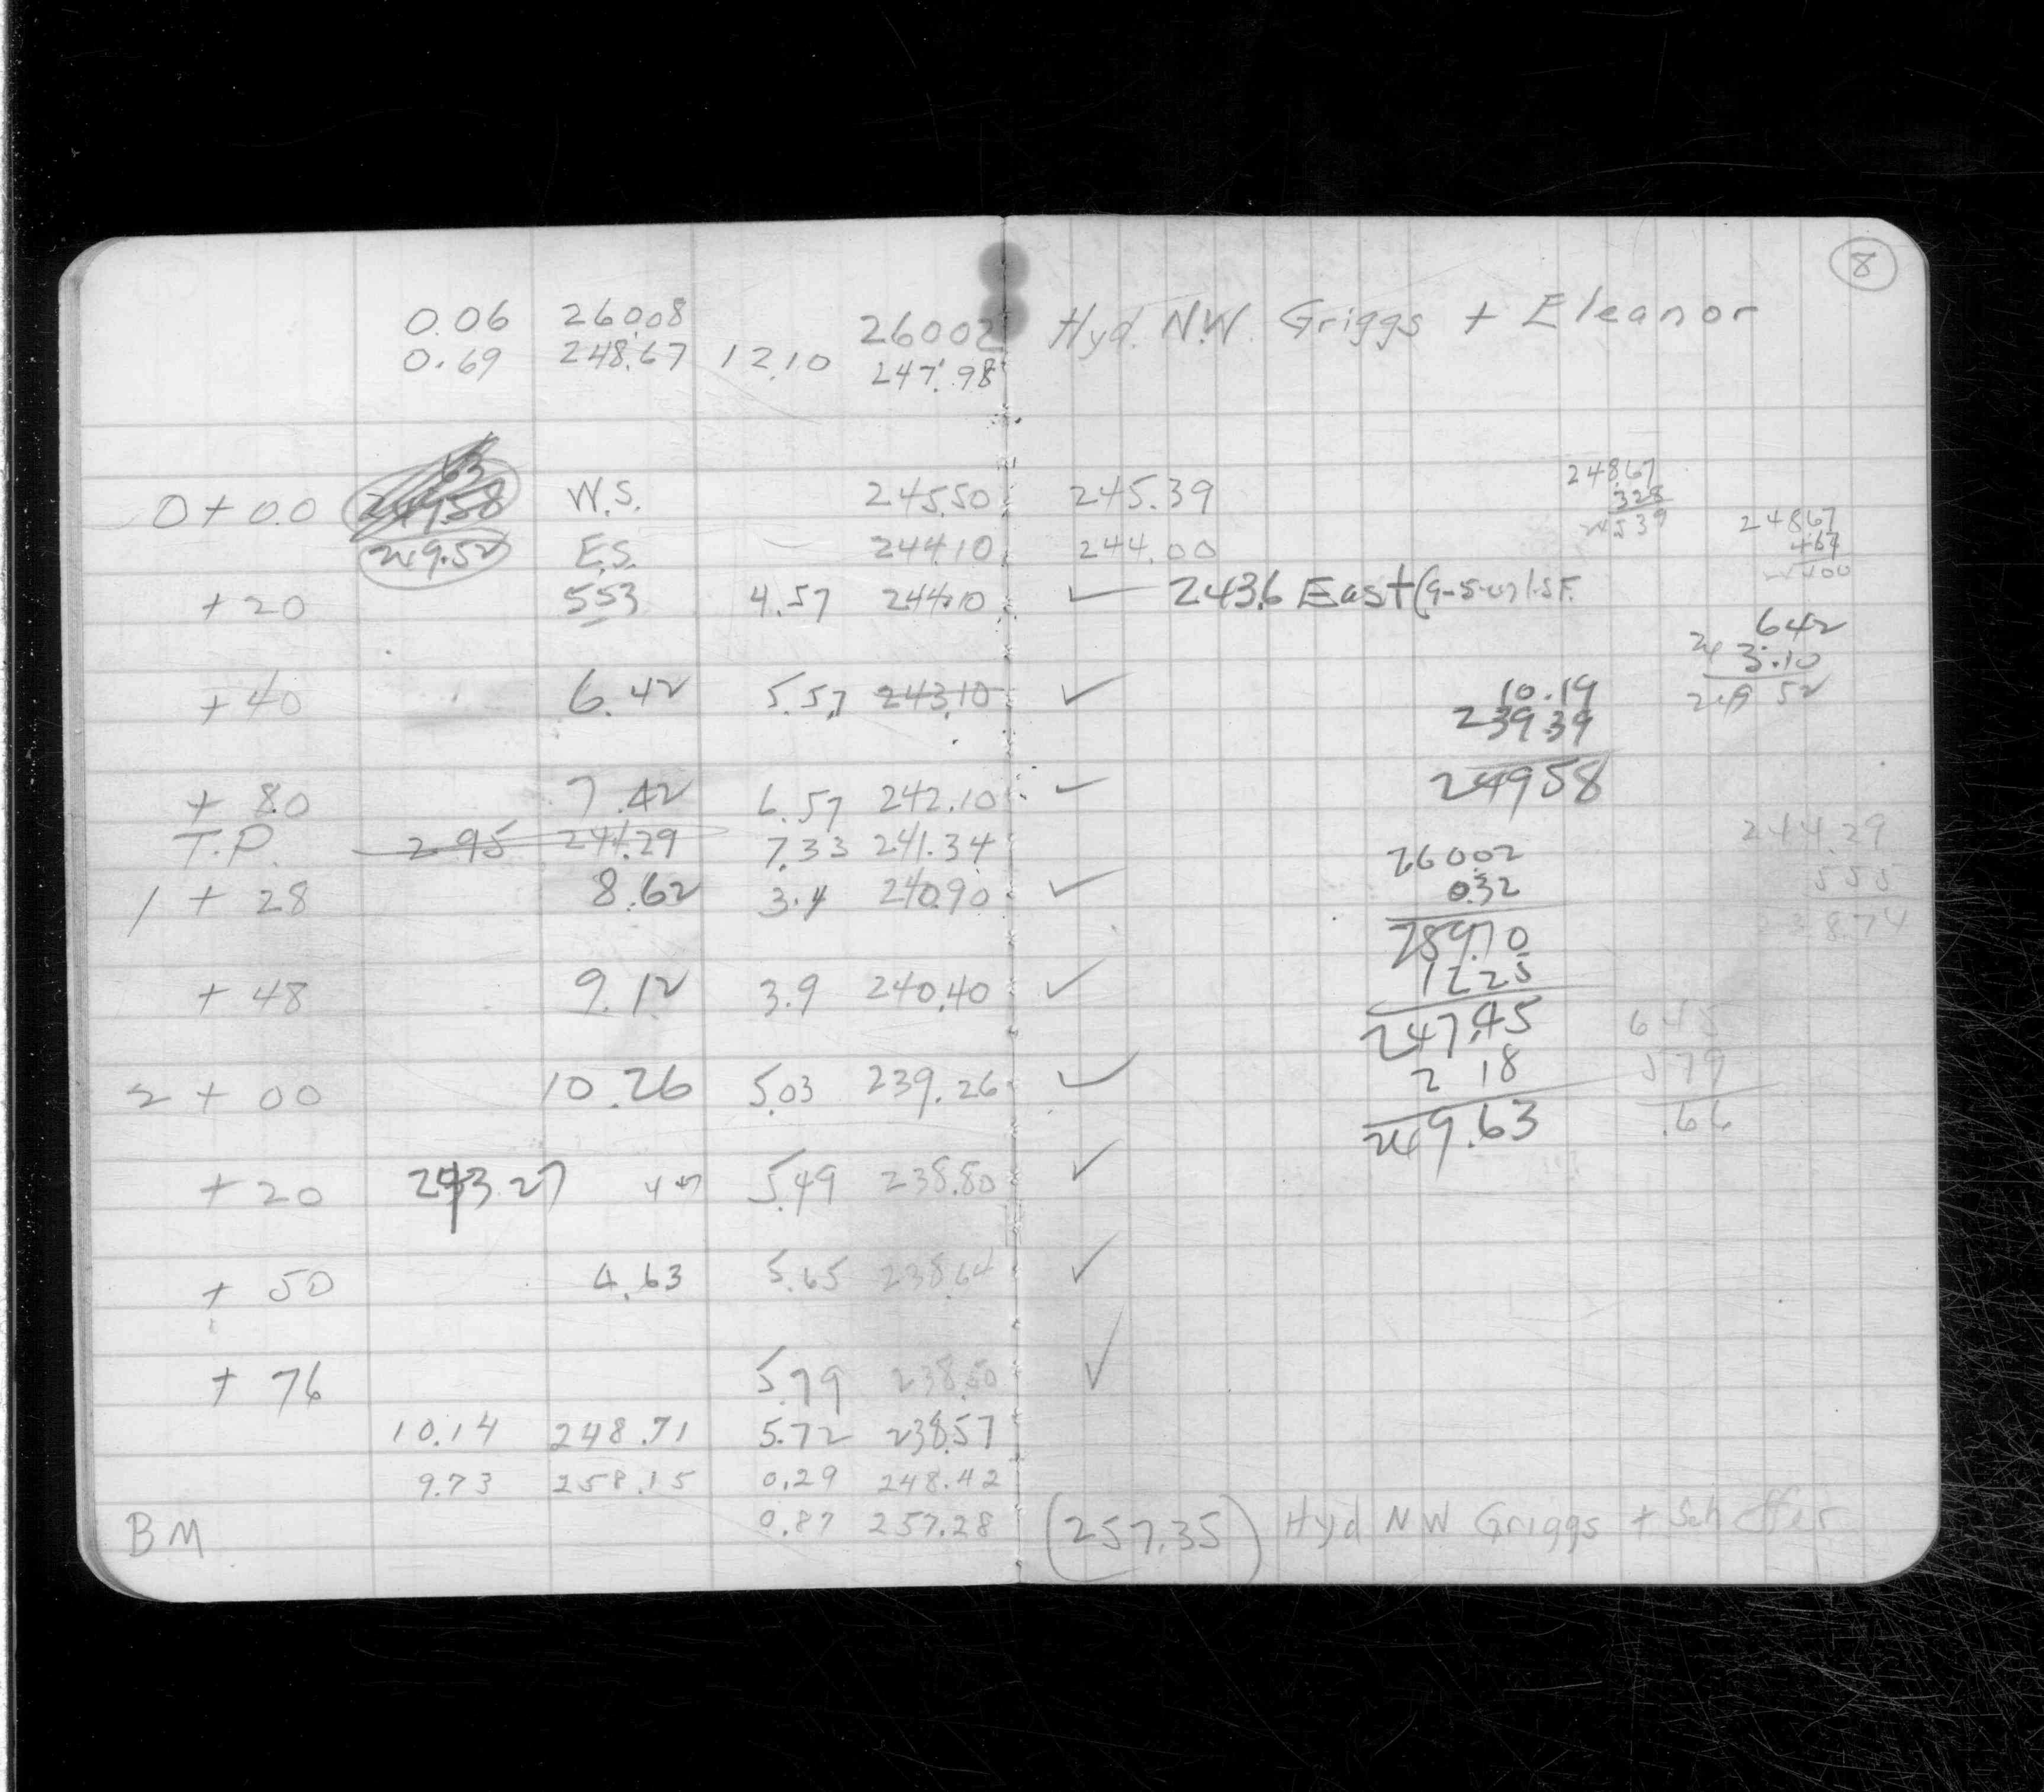 8
0.06 260.08 260.02 Hyd. N.W. Griggs + Eleanor
0.69 248.67 12.10 247.98
63
0+00 249.58 W.S. 245.50 245.39
249.52 E.S. 244.10 244.00
+20 5.53 4.57 244.10 ✓ 243.6 East
+40 6.42 5.57 243.10 ✓
+80 7.42 6.57 242.10 ✓
T.P. 2.95 244.29 7.33 241.34
1+28 8.62 3.4 240.90 ✓
+48 9.12 3.9 240.40 ✓
2+00 10.26 5.03 239.26 ✓
+20 243 27 4 47 5.49 238.80 ✓
+50 4.63 5.65 238.64 ✓
+76 5.79 238.50 ✓
10.14 248.71 5.72 238.57
9.73 258.15 0.29 248.42
BM 0.87 257.28 (257.35) Hyd NW Griggs + Scheffer
248.67
328
24539
248.67
467
400
642
243.10
249 52
10.19
239.39
249 58
260.02
0.32
259.70
12 25
247.45
2 18
249.63
244.29
5 55
8.74
645
579
.66